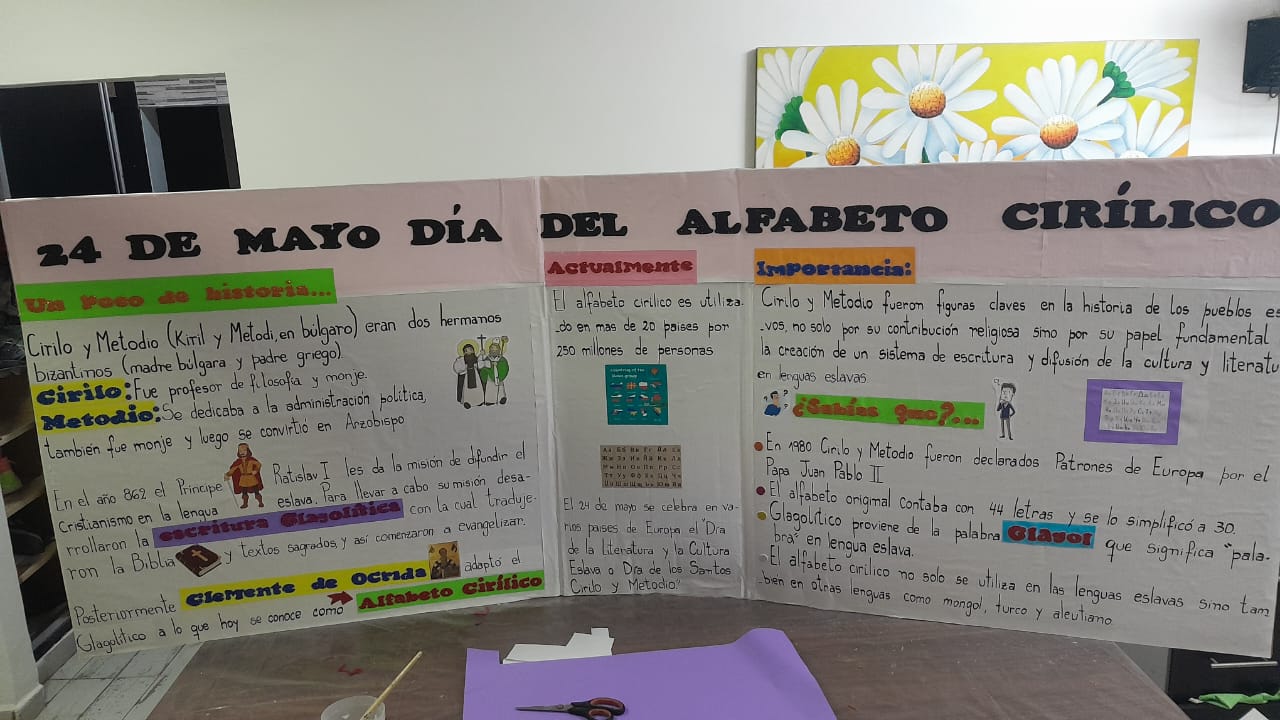 24 DE MAYO DÍA DEL ALFABETO CIRÍLICO
Un Poco de historia...
Cirilo y Metodio (Kiril y Metodi, en búlgaro) eran dos hermanos
bizantinos (madre búlgara y padre griego).
Cirilo: Fue profesor de filosofía y monje.
Metodio: Se dedicaba a la administración política,
también fue monje y luego se convirtió en Arzobispo
En el año 862 el Príncipe Ratislav I les da la misión de difundir el
cristianismo en la lengua eslava. Para llevar a cabo su misión desa-
rrollaron la escritura Glagolítica con la cual traduje-
ron la Biblia y textos sagrados, y así comenzaron a evangelizar.
Posteriormente Clemente de Ocrida adaptó el
Glagolítico a lo que hoy se conoce como Alfabeto Cirílico
Actualmente
El alfabeto cirílico es utiliza-
-do en mas de 20 paises por
250 millones de personas
El 24 de mayo se celebra en va-
rios países de Europa el "Día
de la Literatura y la Cultura
Eslava o Día de los Santos
Cirilo y Metodio."
Importancia:
Cirilo y Metodio fuerom figuras claves en la historia de los pueblos es
-vos, no solo por su contribución religiosa sino por su papel fundamental
la creación de un sistema de escritura y difusión de la cultura y literatu
en lenguas eslavas
¿Sabías que?...
En 1980 Cirilo y Metodio fueron declarados Patrones de Europa por el
Papa Juan Pablo II
El alfabeto original contaba con 44 letras y se lo simplificó a 30.
Glagolítico proviene de la palabra Glagol que significa "pala-
bra" en lengua eslava.
El alfabeto cirílico no solo se utiliza en las lenguas eslavas sino tam
-bien en otras lenguas como mongol, turco y aleutiano